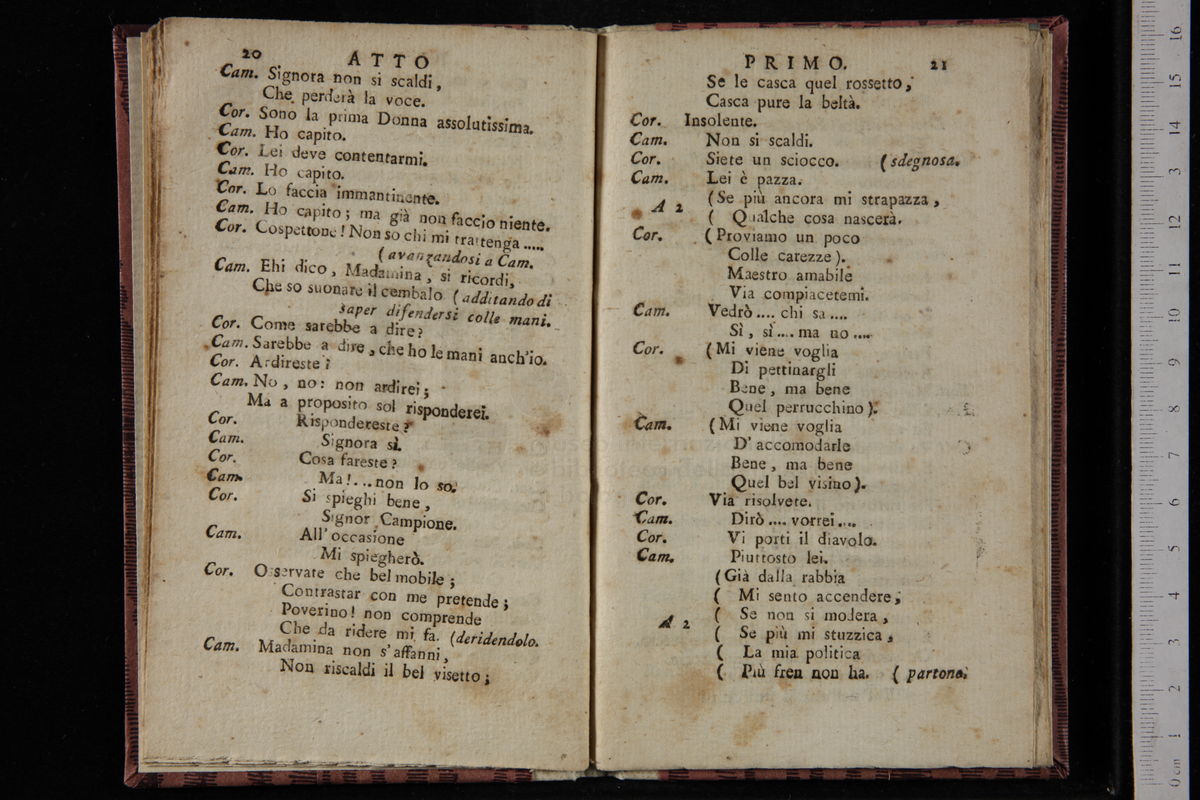 20 ATTO
Cam. Signora non si scaldi,
Che perderà la voce.
Cor. Sono la prima Donna assolutissima.
Cam. Ho capito.
Cor. Lei deve contentarmi.
Cam. Ho capito.
Cor. Lo faccia immantinente.
Cam. Ho capito; ma già non faccio niente.
Cor. Cospettone! Non so chi mi trattenga .....
(avanzandosi a Cam.
Cam. Ehi dico, Madamina, si ricordi,
Che so suonare il cembalo (additando di
saper difendersi colle mani.
Cor. Come sarebbe a dire?
Cam. Sarebbe a dire, che ho le mani anch'io.
Cor. Ardireste?
Cam. No, no: non ardirei;
Ma a proposito sol risponderei.
Cor. Rispondereste?
Cam. Signora sì.
Cor. Cosa fareste?
Cam. Ma!... non lo so.
Cor. Si spieghi bene,
Signor Campione.
Cam. All' occasione
Mi spiegherò.
Cor. Osservate che bel mobile;
Contrastar con me pretende;
Poverino! non comprende
Che da ridere mi fa. (deridendolo.
Cam. Madamina non s'affanni,
Non riscaldi il bel visetto;
PRIMO. 21
Se le casca quel rossetto,
Casca pure la beltà.
Cor. Insolente.
Cam. Non si scaldi.
Cor. Siete un sciocco. (sdegnosa.
Cam. Lei è pazza.
A 2 (Se più ancora mi strapazza,
( Qualche cosa nascerà.
Cor. (Proviamo un poco
Colle carezze).
Maestro amabile
Via compiacetemi.
Cam. Vedrò .... chi sa ....
Sì, sì .... ma no ....
Cor. (Mi viene voglia
Di pettinargli
Bene, ma bene
Quel perrucchino).
Cam. (Mi viene voglia
D' accomodarle
Bene, ma bene
Quel bel visino).
Cor. Via risolvete.
Cam. Dirò .... vorrei ....
Cor. Vi porti il diavolo.
Cam. Piuttosto lei.
(Già dalla rabbia
( Mi sento accendere;
( Se non si modera,
A 2 ( Se più mi stuzzica,
( La mia politica
( Più fren non ha. ( partono.
0 cm 1 2 3 4 5 6 7 8 9 10 11 12 13 14 15 16